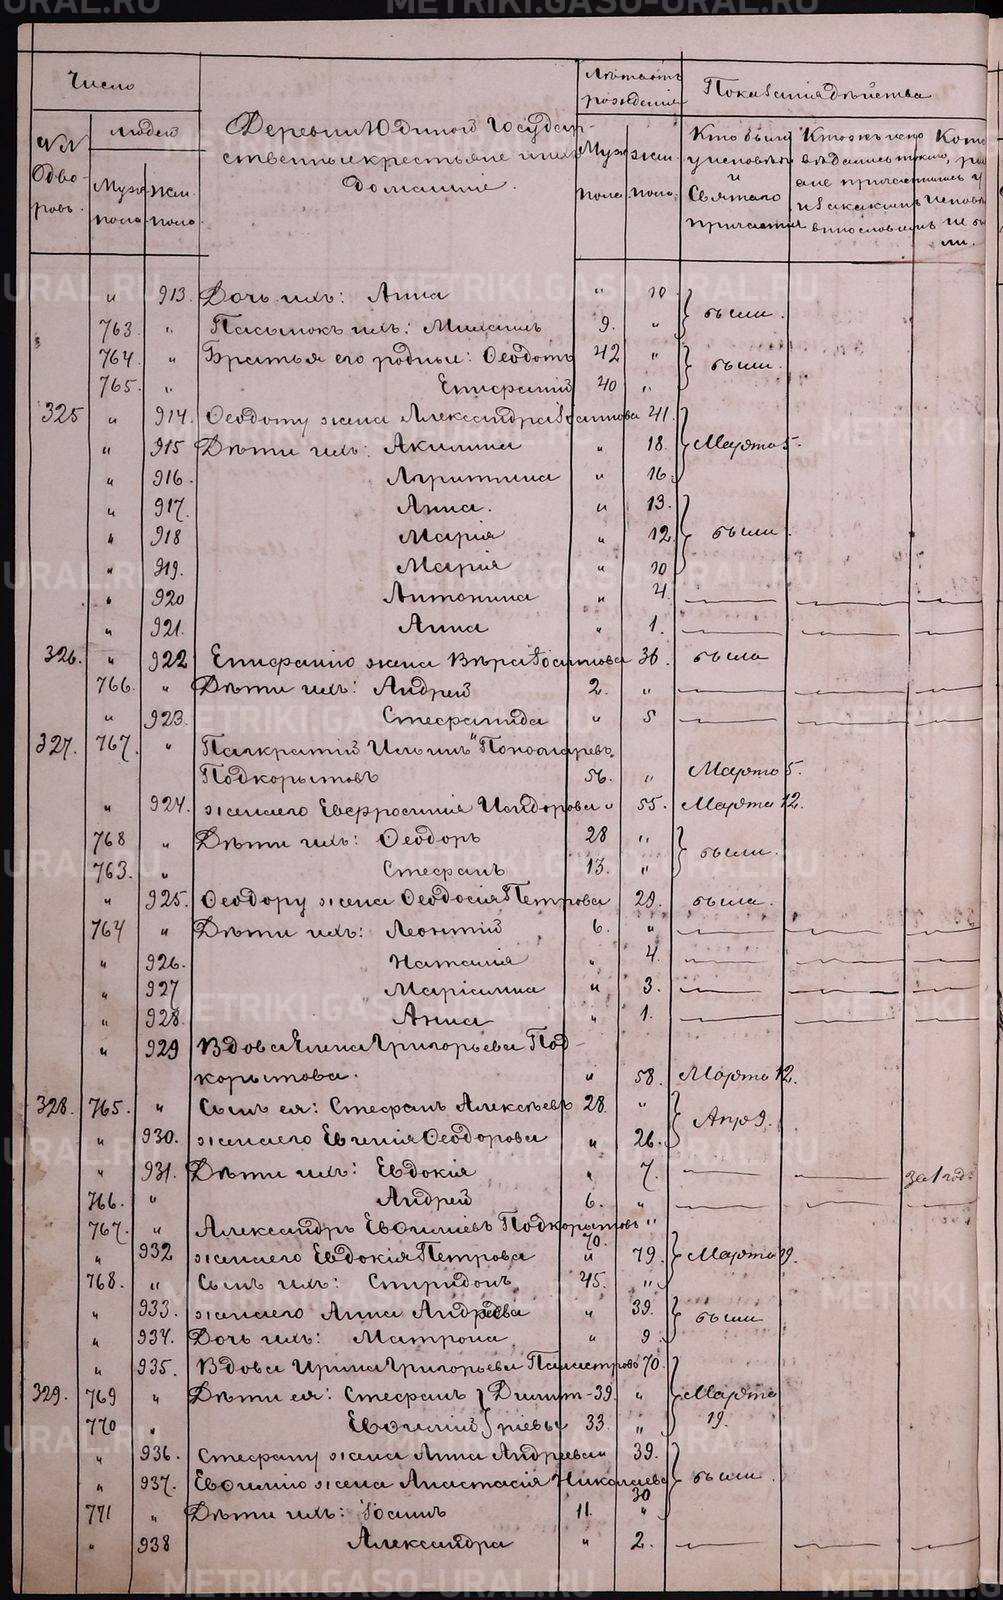 Число
Людей
Деревни Юдиной Государ-
ственные крестьяне и ихъ
домашніе.
Лѣта отъ
рожденія
Показанія дѣйства
№№
Дво-
ровъ.
Муж. поло.
Жен. поло.
Муж. пола.
Жен. поло.
Кто были
у исповѣди
и
Святаго
причастія
" 913. Дочь ихъ: Анна " 10. были.
763. " Пасынокъ ихъ: Михаилъ 9. "
764. " Братья его родные: Ѳеодотъ 42 " были.
765. " Епифаній 40 "
325 " 914. Ѳеодоту жена Александра Іоаннова 41.
" 915 Дѣти ихъ: Акилина " 18. Марта 5.
" 916. Агрипина " 16.
" 917. Анна. " 13.
" 918 Марія " 12. были.
" 919. Марія " 10
" 920 Антонина " 4.
" 921. Анна " 1.
326. " 922 Епифанію жена Вѣра Іосифова 36. была
766. " Дѣти ихъ: Андрей 2. "
" 923. Стефанида " 5
327. 767. " Панкратій Ильинъ Пономаревъ
Подкорытовъ 56. " Марта 5.
" 924. жена его Евфросинія Исидорова " 55. Марта 12.
768 " Дѣти ихъ: Ѳеодоръ 28 "
763. " Стефанъ 13. " были.
" 925. Ѳеодору жена Ѳеодосія Петрова 29. была.
764 " Дѣти ихъ: Леонтій 6. "
" 926. Наталія " 4.
" 927 Маріамна " 3.
" 928. Анна " 1.
" 929 Вдова Елена Григорьева Под-
корытова. " 58. Марта 12.
328. 765. " Сынъ ея: Стефанъ Алексѣевъ 28. "
" 930. жена его Евгенія Ѳеодорова " 26. Апр. 9.
" 931. Дѣти ихъ: Евдокія " 7. за 1 годъ
766. " Андрей 6. "
767. " Александръ Евѳиміевъ Подкорытовъ "
70.
" 932 жена его Евдокія Петрова " 79. Марта 19.
768. " Сынъ ихъ: Спиридонъ 45. "
" 933. жена его Анна Андреева " 39. были
" 934. Дочь ихъ: Матрона " 9.
" 935. Вдова Ирина Григорьева 70.
329. 769 " Дѣти ея: Стефанъ Димит- 39. " Марта
770 " Евѳимій ріевы 33. " 19.
" 936. Стефану жена Анна Андреева " 39.
" 937. Евѳимію жена Анастасія Николаева были.
30
771 " Дѣти ихъ: Іоаннъ 11. "
" 938 Александра " 2.
METRIKI.GASO-URAL.RU